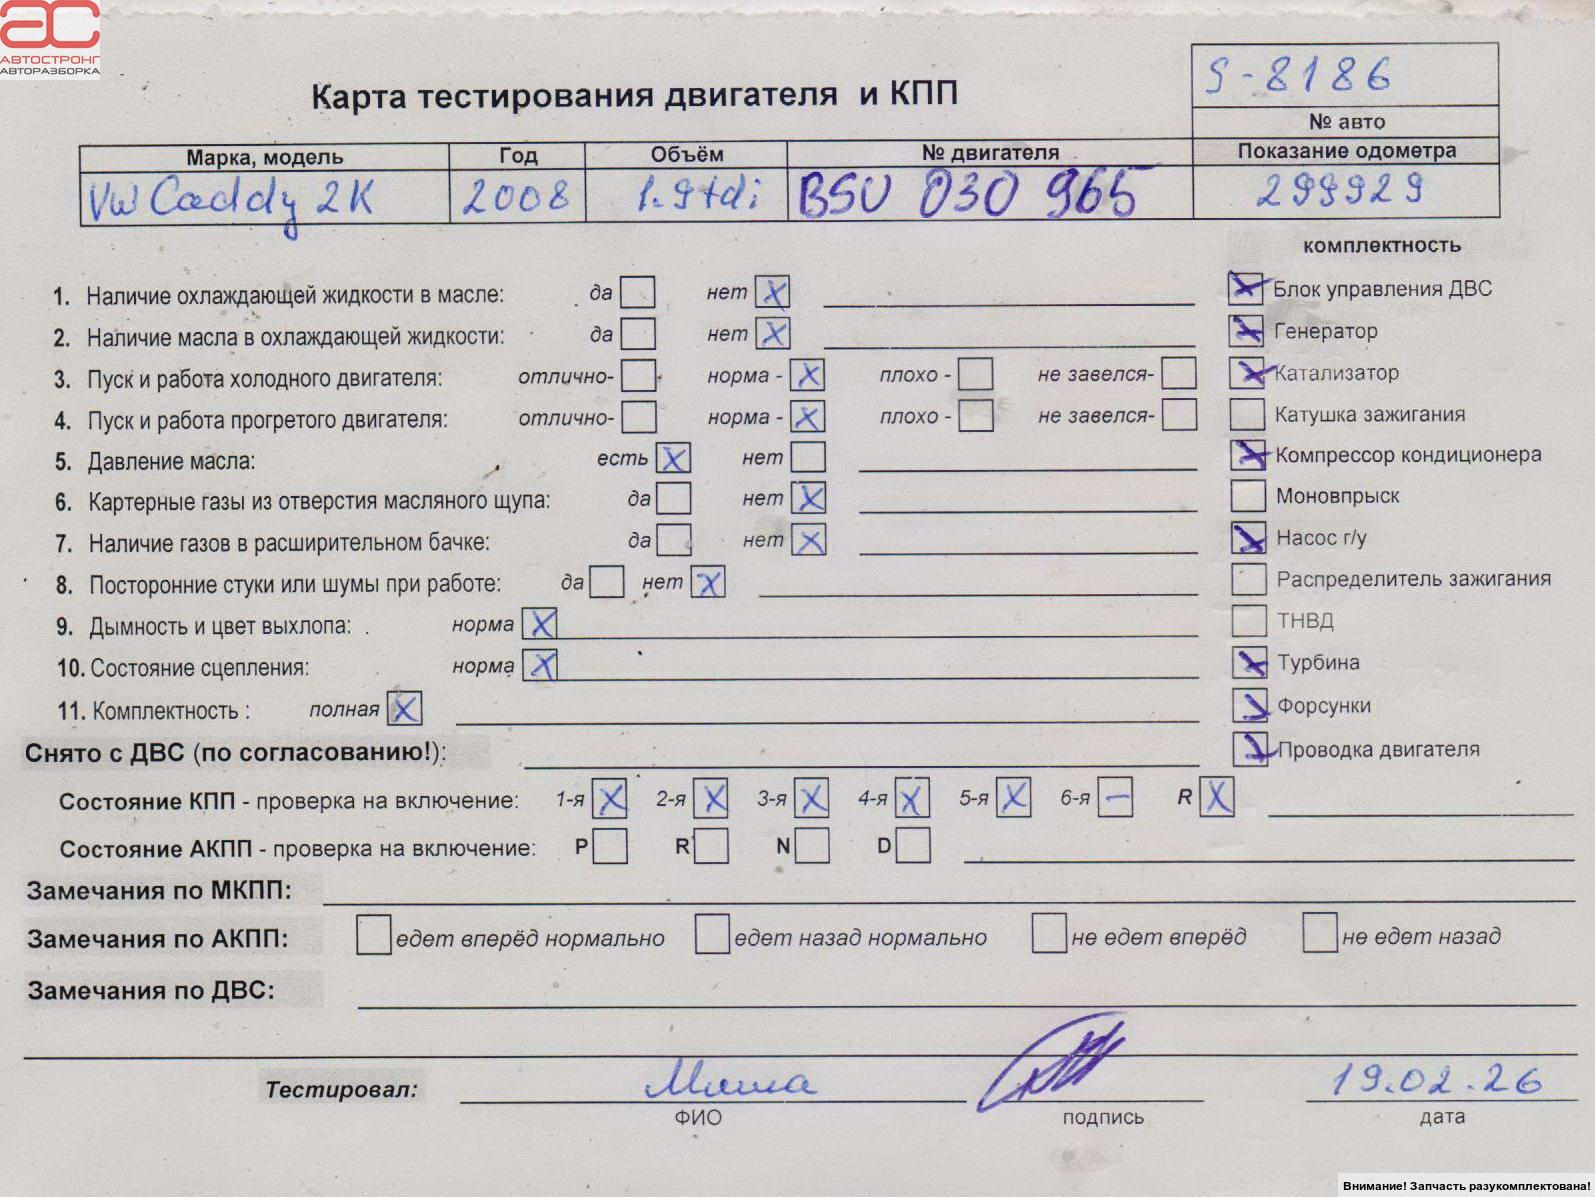 АВТОСТРОНГ
АВТОРАЗБОРКА
Карта тестирования двигателя и КПП
S-8186
№ авто
Марка, модель Год Объём № двигателя Показание одометра
VW Caddy 2K 2008 1.9tdi BSU 030 965 299929
комплектность
1. Наличие охлаждающей жидкости в масле: да нет X
Блок управления ДВС
2. Наличие масла в охлаждающей жидкости: да нет X
Генератор
3. Пуск и работа холодного двигателя: отлично- норма - X плохо - не завелся-
Катализатор
4. Пуск и работа прогретого двигателя: отлично- норма - X плохо - не завелся-
Катушка зажигания
5. Давление масла: есть X нет
Компрессор кондиционера
6. Картерные газы из отверстия масляного щупа: да нет X
Моновпрыск
7. Наличие газов в расширительном бачке: да нет X
Насос г/у
8. Посторонние стуки или шумы при работе: да нет X
Распределитель зажигания
9. Дымность и цвет выхлопа: норма X
ТНВД
10. Состояние сцепления: норма X
Турбина
11. Комплектность : полная X
Форсунки
Снято с ДВС (по согласованию!):
Проводка двигателя
Состояние КПП - проверка на включение: 1-я X 2-я X 3-я X 4-я X 5-я X 6-я – R X
Состояние АКПП - проверка на включение: P R N D
Замечания по МКПП:
Замечания по АКПП: едет вперёд нормально едет назад нормально не едет вперёд не едет назад
Замечания по ДВС:
Тестировал: 19.02.26
ФИО подпись дата
Внимание! Запчасть разукомплектована!